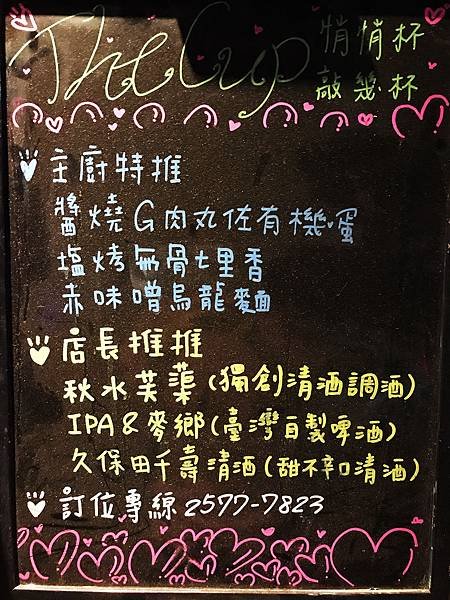 The Cup 悄悄杯
敲幾杯
主廚特推
醬燒G肉丸佐有機蛋
塩烤無骨七里香
赤味噌烏龍麵
店長推推
秋水芙蕖(獨創清酒調酒)
IPA & 麥鄉(臺灣自製啤酒)
久保田千壽清酒(甜不辛口清酒)
訂位專線 2577-7823